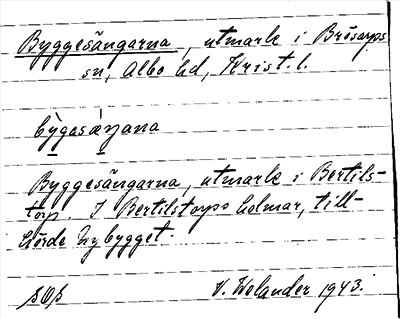 Byggesängarna, utmark i Brösarps
sn, Albo hd, Krist. l.
bỳgasæ̀ŋana
Byggesängarna, utmark i Bertils-
torp. I Bertilstorps holmar, till-
hörde Nybygget.
V. Welander 1943.